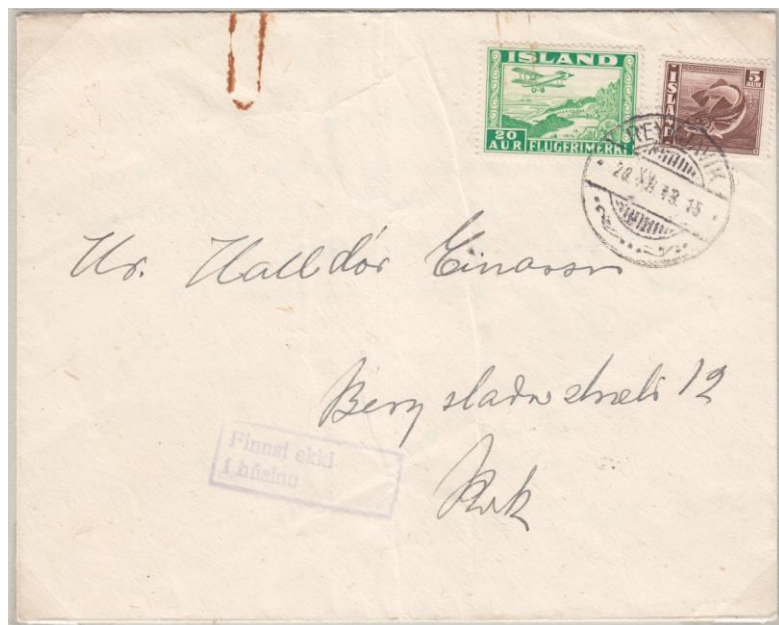 ÍSLAND
20
AUR FLUGFRÍMERKI
5
AUR
ÍSLAND
REYKJAVÍK
Hr. Halldór Einarsson
Bergstaðastræti 12
Rvk
Finnst ekki
í húsinu